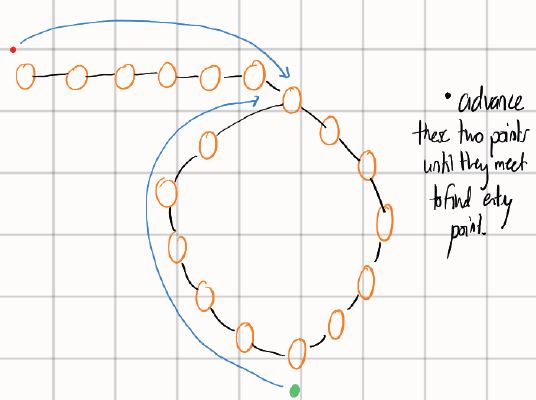 • advance
these two points
until they meet
to find entry
point.